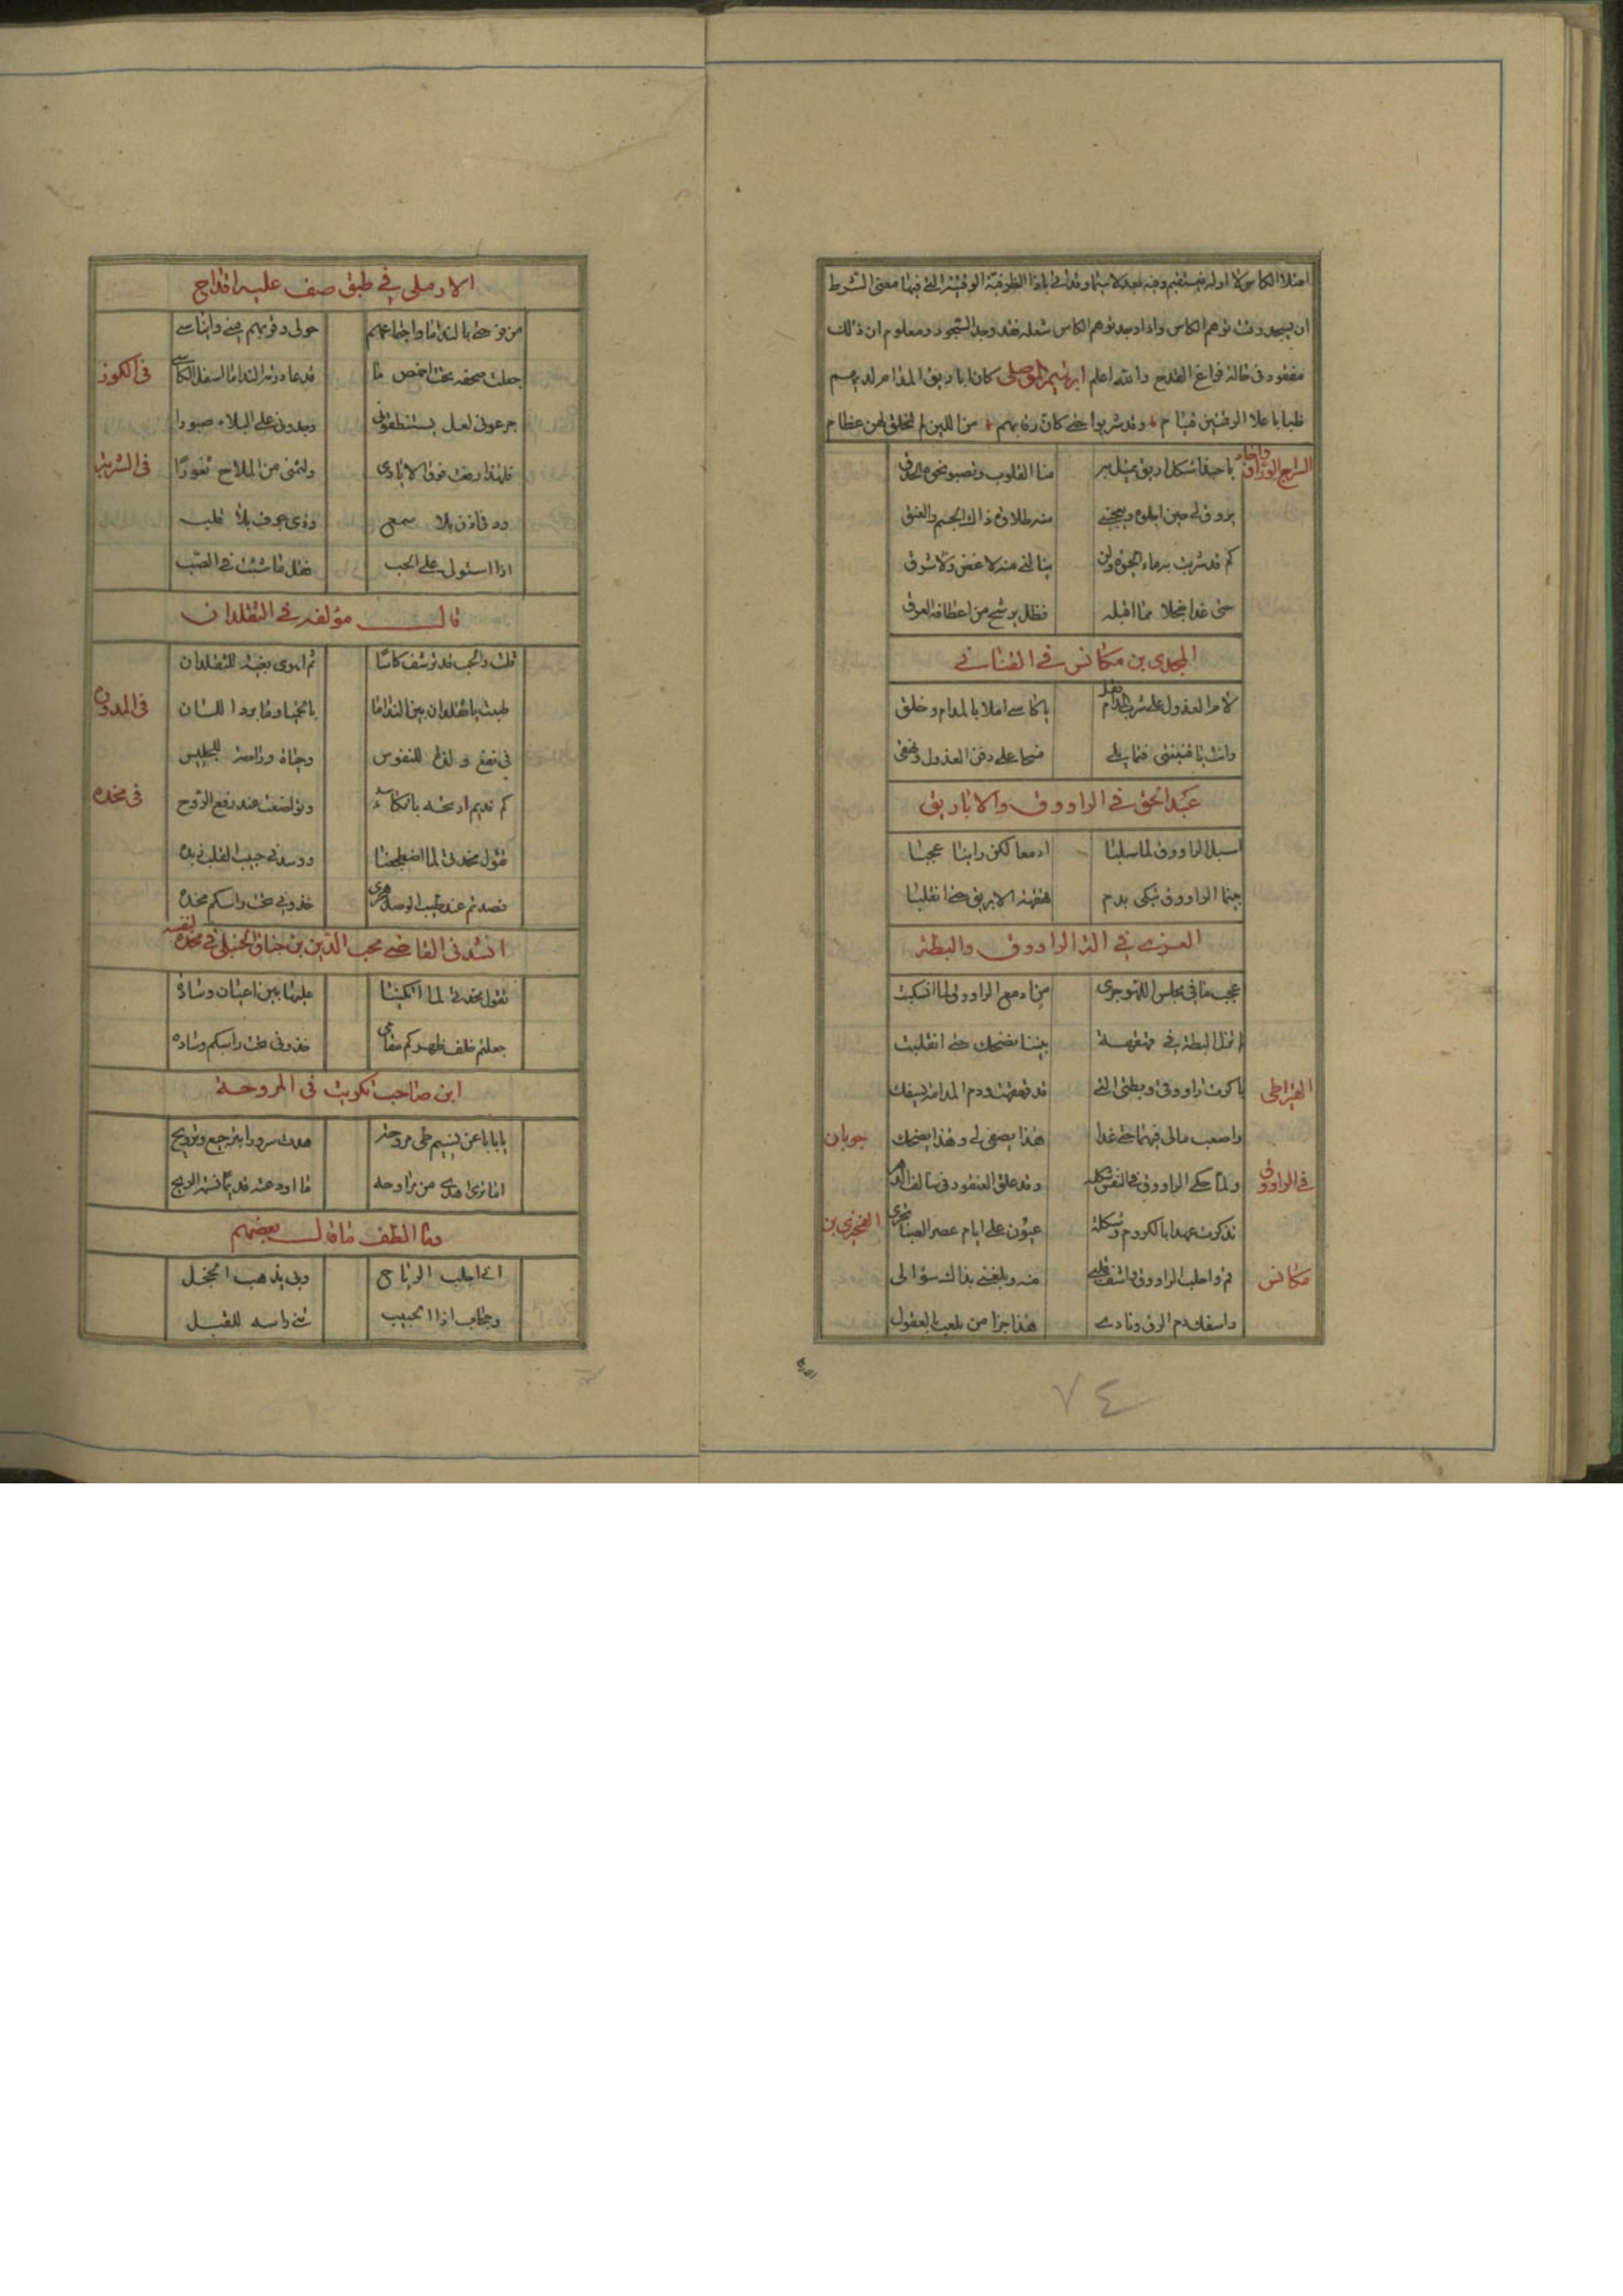 امتلا الكاس لا اوله فيستقيم وفيه بعد لا سيما وقد اتى باذا الظرفية الوقتية التي فيها معنى الشرط
ان يسجد وقت توهم الكاس واذا وجد توهم الكاس شعله فقد وجد السجود ومعلوم ان ذلك
مفقود في حالة فراغ القدح والله اعلم ابرهيم الموصلي كان اباريق المدام لديهم
ظبا باعلا الرقمتين قيام وقد شربوا حتى كان رقابهم من اللين لم تخلق لهن عظام
السراج الوراق واجاد يا حبذا شكل ابريق تميل به منا القلوب وتصبو نحوه الحدق
يروق لي حين اجلوه ويعجبني منه طلاوة ذاك الجسم والعنق
كم قد شربت به ماء الحيوة ولن ينالني منه لا غص ولا شرق
حتى غدا خجلا مما اقبله فظل يرشح من اعطافه العرق
المجدي بن مكانس في القناني
لام العذول على شرب المدام فقل يا كاسي املا بالمدام وخلق
وانت يا قنينتي قبالي فتحا على دقن العذول وبقبقي
عبد الحق في الراووق والاباريق
اسبل الراووق لما سلبا ادمعا لكن راينا عجبا
بينما الراووق تبكي بدم قهقهة الابريق حتى انقلبا
العزى في الراووق والبطة
عجب ما في مجلس اللهو جرى من ادمع الراووق لما انسكبت
لم تزل البطة في قهقهة بيننا تضحك حتى انقلبت
القيراطي باكرت راووقي وبطتي التي قد قهقهت ودم المدامة يسفك
واصعب مالي فيهما حتى غدا هذا يصفي لي وهذا يضحك جوبان
في الراووق ولما حكى الراووق في النفس شكله وقد علق العنقود في سالف الدهر
تذكرت عهدا بالكروم وشكلة عيون على ايام عصر الصبا تجرى الفخري بن
مكانس قم واجلب الراووق واشف قلبي منه وبلغني بذاك سؤالى
واسفك دم الزق ونادى هذا جزا من يلعب بالعقول
٧٤
الارملى في طبق صف عليه اقداح
من فرحتي بالندامى واجتماعهم حولى وقربهم مني وايناسي
جعلت صحفه تحت اخمص ما قد عا دوره الندامى اسفل الكاس في الكوز
جرعوني لعل يستنطقوني وجدوني على البلاء صبورا
فلهذا رفعت فوق الايادى ولثمني من الملاح ثغورا في الشربة
وذي اذن بلا سمع وذى جوف بلا قلب
اذا استولى على الحب فقل ما شئت في الصب
قال مؤلفه في النقلدان
قلت والحب قد ترشف كاسا ثم اهوى بفيه للنقلدان
طبت يا نقلدان بين الندامى بالمحيا وما بردا للسان في المدورة
في نفع ولذة للنفوس وحياة وراحة للجليس
كم نديم ارحته باتكاء وتواضعت عند رفع الرؤس في مخده
تقول مخدتي لما اضطجعنا ووسدني حبيب القلب زنده
قصدتم عند طيب الوصل هجرى خذوني تحت راسكم مخده
انشدني القاضي محب الدين بن جناق الحنبلي في مخدة لنفسه
تقول مخدتي لما اتكينا عليها بين اعيان وساده
جعلتم خلف ظهركم مقامي خذوني تحت راسكم وساده
ابن صاحب تكريت في المروحة
يا باباعن نسيم طى مروحة هدت سرورا بترجيع وترويح
اما ترى اهدى من مراوحه ما اودعته قديما نسمة الريح
وما الطف ما قال بعضهم
اني اجلب الرياح وبي يذهب الخجل
وحجاب اذا الحبيب ثنى راسه للقبل